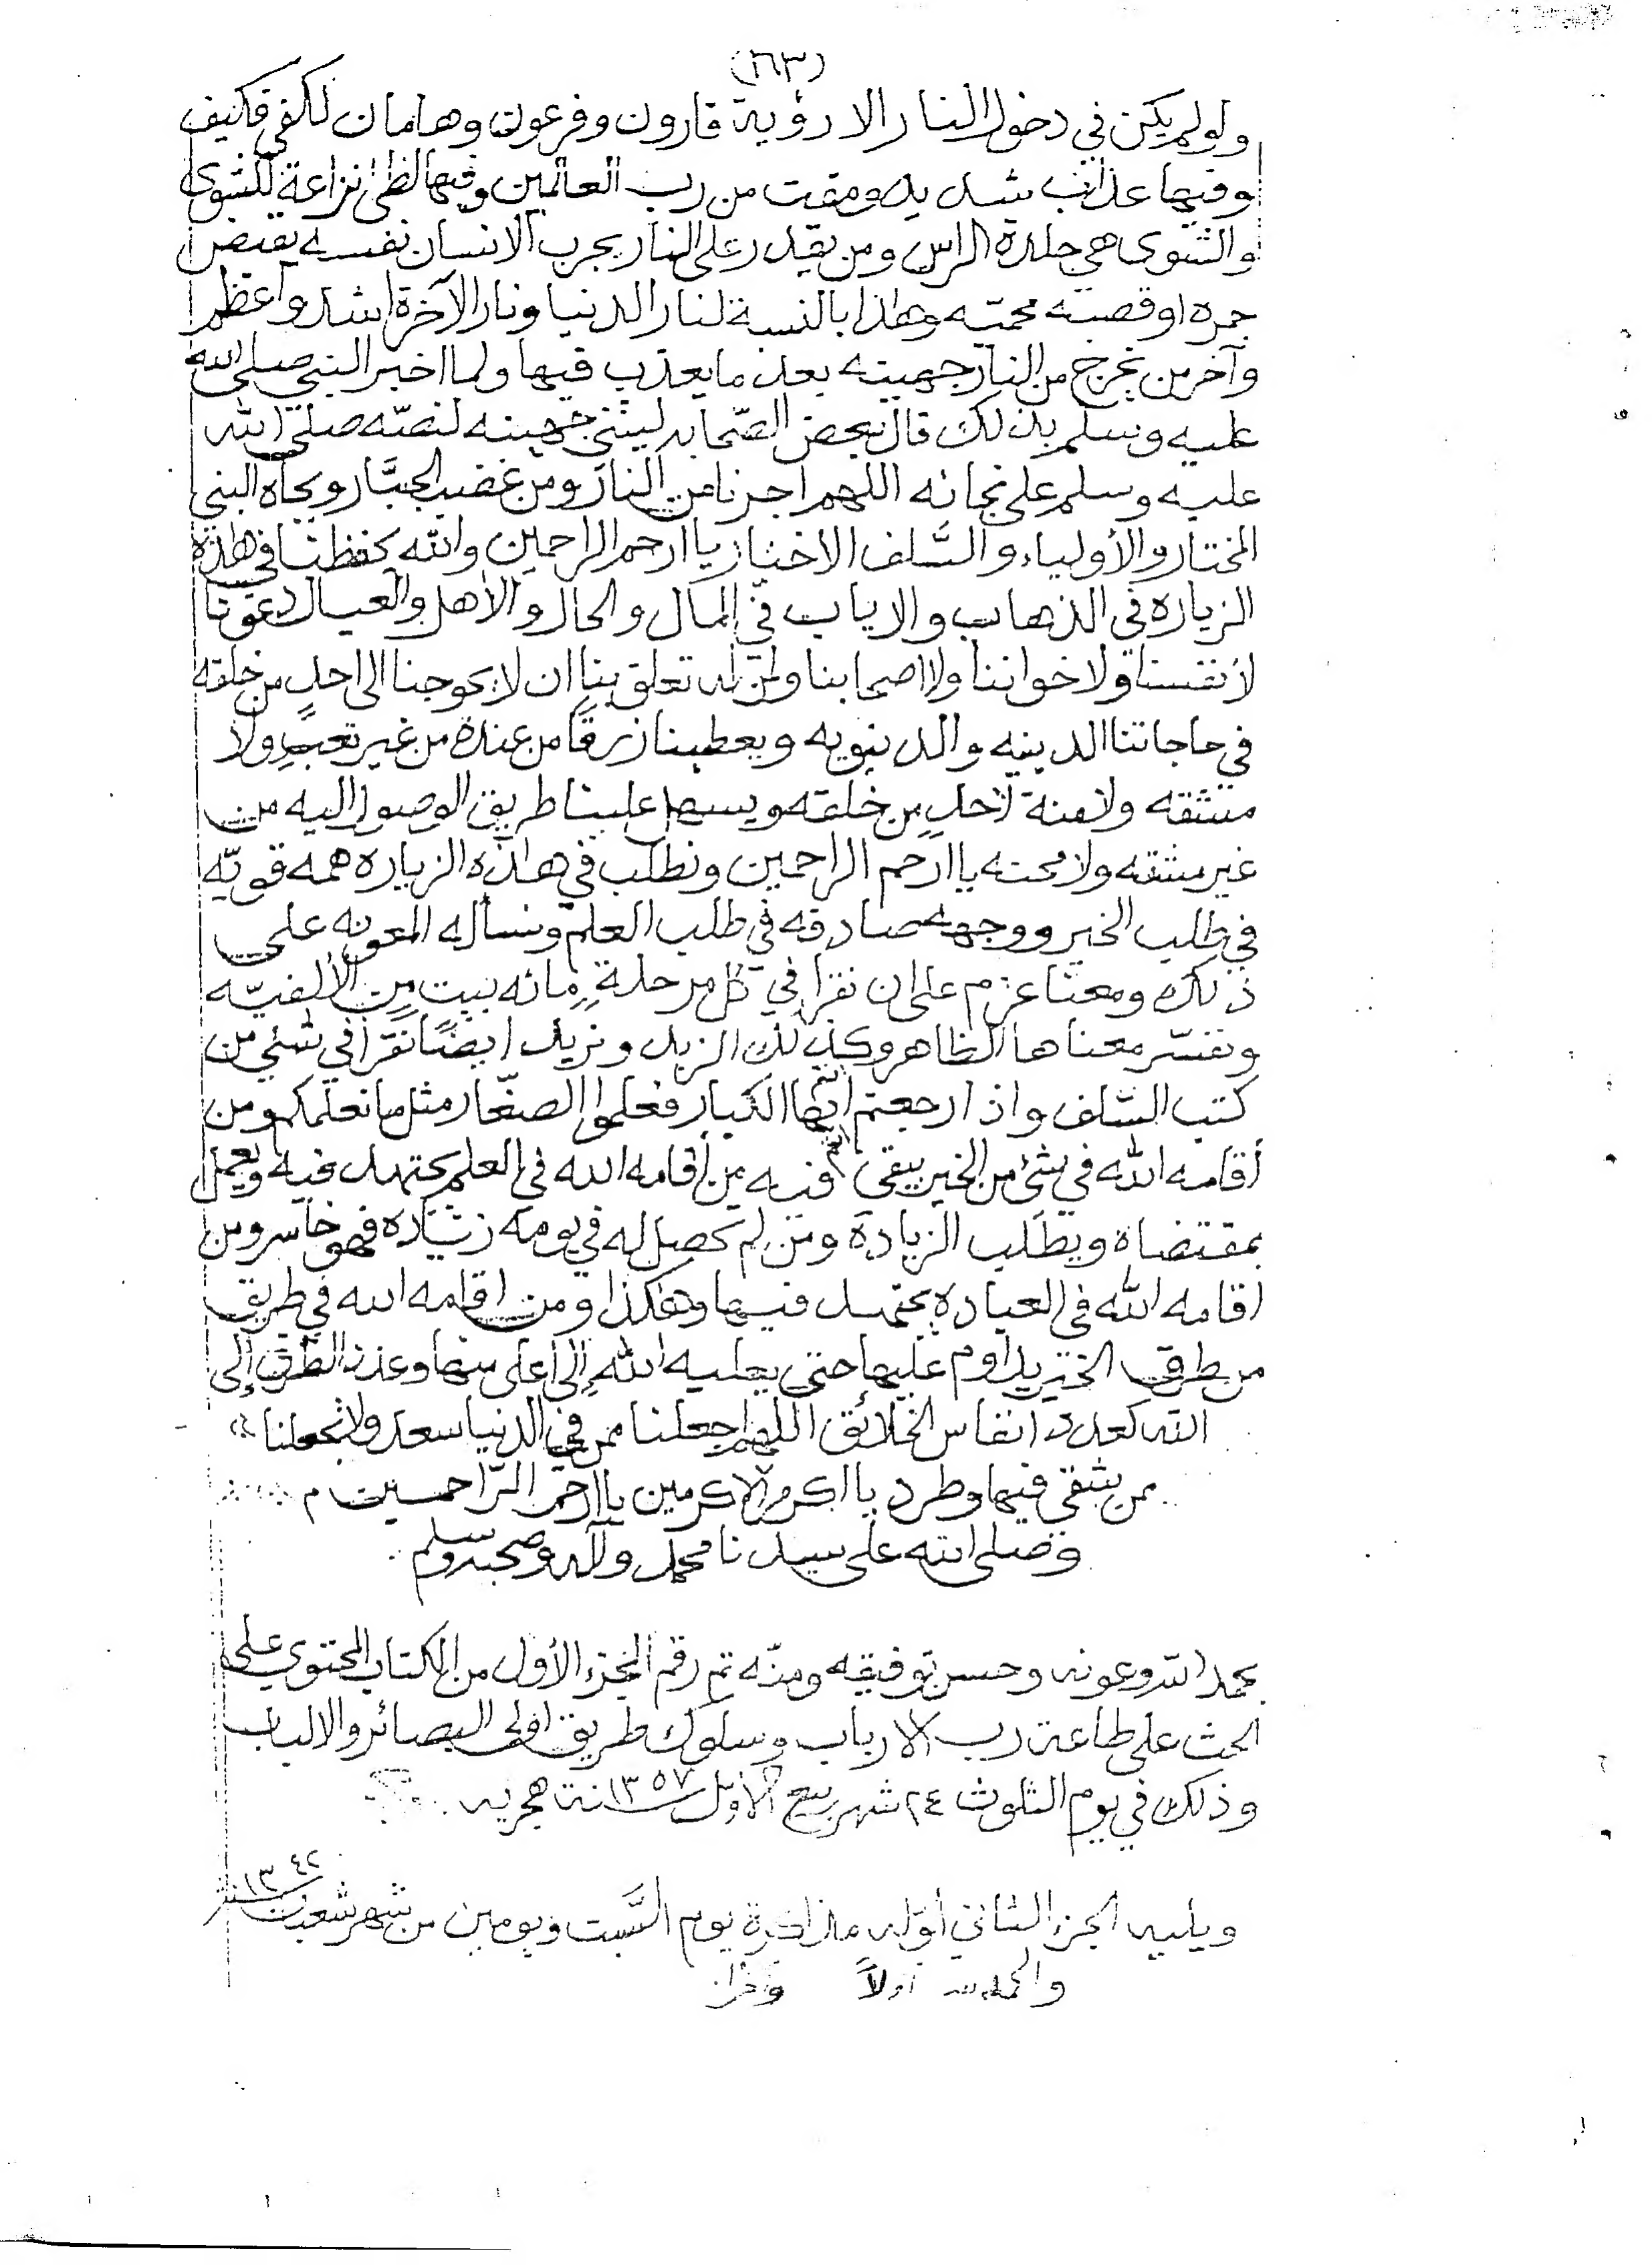 (٢٦٣)
ولو لم يكن في دخول النار الا رؤية قارون وفرعون وهامان لكفى فكيف
وفيها عذاب شديد ومقت من رب العالمين وفيها لظى نزاعة للشوى
والشوى هي جلدة الراس ومن يقدر على النار يجرب الانسان نفسه يقبض
جمره او قصبه محميه وهذا بالنسبة لنار الدنيا ونار الآخرة اشد واعظم
وآخر من يخرج من النار جهينه بعد ما يعذب فيها ولما اخبر النبي صلى الله
عليه وسلم بذلك قال بعض الصحابه ليتني جهينه لنصّه صلى الله
عليه وسلم على نجاته اللهم اجرنا من النار ومن غضب الجبَّار وبجاه النبي
المختار والأولياء والسَّلف الاخيار يا ارحم الراحمين والله يحفظنا في هذه
الزياره في الذهاب والاياب في المال والحال والأهل والعيال دعونا
لأنفسنا ولاخواننا ولاصحابنا ولمن له تعلق بنا ان لا يحوجنا الى احدٍ من خلقه
في حاجاتنا الدينيه والدنيويه ويعطينا رزقًا من عنده من غير تعبٍ ولا
مشقه ولا منة لأحدٍ من خلقه ويسهل علينا طريق الوصول اليه من
غير مشقه ولا محنه يا ارحم الراحمين ونطلب في هذه الزياره همه قويّه
في طلب الخير ووجهه صادقه في طلب العلم ونسأله المعونه على
ذلك ومعنا عزم على ان نقرأ في كل مرحلةٍ مائه بيت من الألفيّه
ونفسّر معناها الظاهر وكذلك الزبد ونريد ايضًا نقرأ في شئي من
كتب السلف واذا رجعتم انتم ايها الكبار فعلموا الصغّار مثل ما نعلمكم ومن
أقامه الله في شئ من الخير يبقى فيه من أقامه الله في العلم يجتهد فيه ويعمل
بمقتضاه ويطلب الزيادة ومن لم تحصل له في يومه زياده فهو خاسر ومن
اقامه الله في العباده يجتهد فيها وهكذا ومن اقامه الله في طريق
من طرق الخير يداوم عليها حتى يعليه الله إلى أعلى منها وعدد الطرق إلى
الله كعدد انفاس الخلائق اللهم اجعلنا ممن في الدنيا سعد ولا تجعلنا
ممن شقي فيها وطرد يا اكرم الاكرمين يا ارحم الرّاحمين م
وصلى الله على سيدنا محمد وآله وصحبه وسلم
بحمد الله وعونه وحسن توفيقه ومنّه تم رقم الجزء الأول من الكتاب المحتوي على
الحث على طاعة رب الارباب وسلوك طريق اولى البصائر والالباب
وذلك في يوم الثلوث ٢٤ شهر ربيع الأول سنة ١٣٥٧ هجريه
ويليه الجزء الثاني أوّله مذاكرة يوم السَّبت ويومين من شهر شعبان سنة ١٣٤٢
والحمد لله اولاً وآخراً